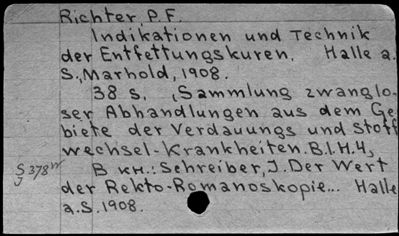 Richter, P.F.
Indikationen und Technik
der Entfettungskuren. Halle a.
S., Marhold, 1908.
38 s. (Sammlung zwanglo-
ser Abhandlungen aus dem Ge-
biete der Verdauungs und Stoff
wechsel-Krankheiten. B.I.H.4,
В кн.: Schreiber, J. Der Wert
der Rekto-Romanoskopie... Halle
a.S. 1908.
S 378
J